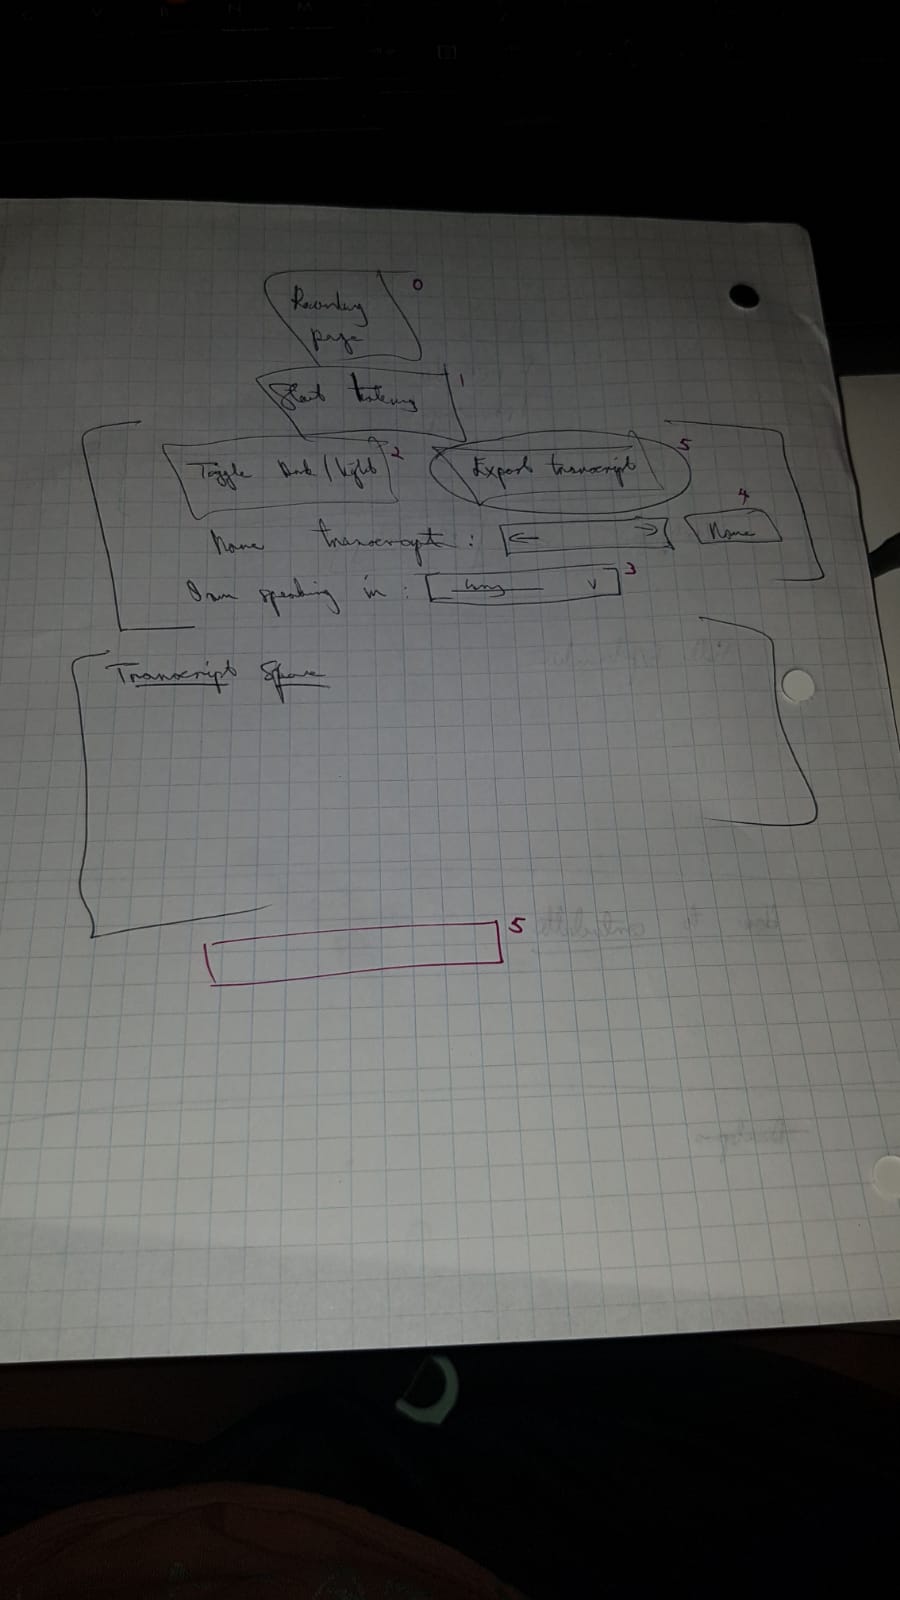 Recording 0
page
Start listening 1
Toggle Dark/Light 2 Export transcript 5
Name transcript: Name 4
I am speaking in: lang 3
Transcript Space
5